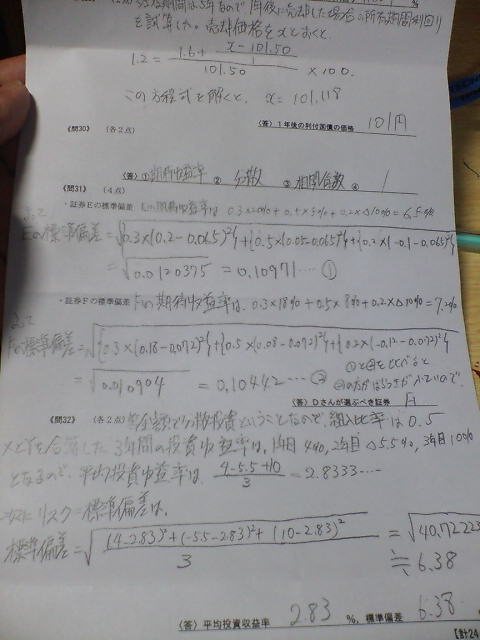 を試算した。売却価格をxとおくと。
1.2 = (1.6 + (x - 101.50)/1) / 101.50 × 100.
この方程式を解くと、x = 101.118
(答) 1年後の利付国債の価格 101円
《問30》 (各2点)
(答) ① 期待収益率 ② 分散 ③ 相関係数 ④ 1
《問31》 (4点)
・証券Eの標準偏差 Eの期待収益率は 0.3×20%+0.5×5%+0.2×△10%=6.5%
よって
Eの標準偏差 = √{0.3×(0.2-0.065)²}+{0.5×(0.05-0.065)²}+{0.2×(-0.1-0.065)²}
= √0.0120375 = 0.10971… ①
・証券Fの標準偏差 Fの期待収益率は、0.3×18%+0.5×8%+0.2×△12%=7.2%
よって
Fの標準偏差 = √{0.3×(0.18-0.072)²}+{0.5×(0.08-0.072)²}+{0.2×(-0.12-0.072)²}
= √0.010904 = 0.10442… ②
①と②を比べると
(答) Dさんが選ぶべき証券
《問32》 (各2点) 等金額での分散投資ということなので、組入比率は0.5
XとYを合算した3年間の投資収益率は、1年目4%、2年目△5.5%、3年目10%
となるので、平均投資収益率は (4-5.5+10)/3 = 2.8333…
次に リスク=標準偏差は、
標準偏差 = √((4-2.83)²+(-5.5-2.83)²+(10-2.83)²)/3 = √40.7222
≒ 6.38
(答) 平均投資収益率 2.83 %、標準偏差 6.38
【計24